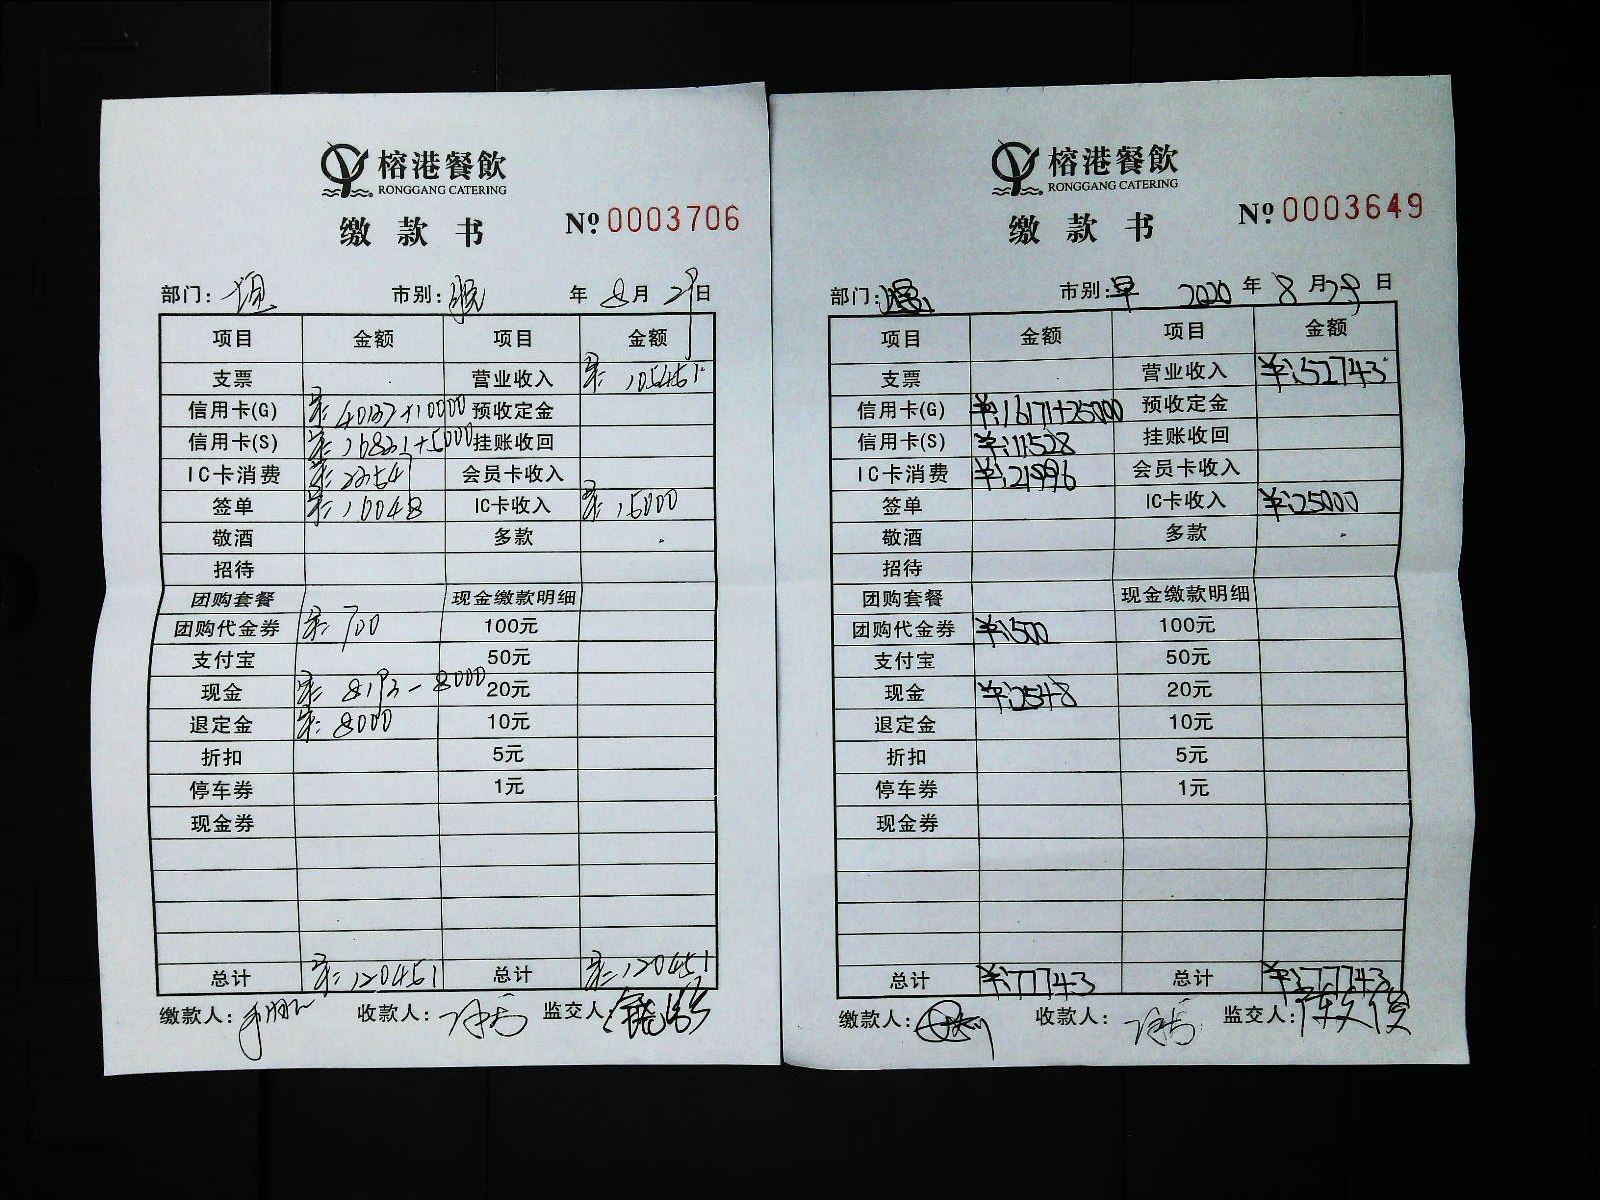 榕港餐飲
RONGGANG CATERING
缴款书 № 0003706
部门: 市别: 年 8月 29日
项目 金额 项目 金额
支票 营业收入 ¥:105451
信用卡(G) 预收定金
信用卡(S) 挂账收回
IC卡消费 会员卡收入
签单 ¥:10048 IC卡收入 ¥:15000
敬酒 多款
招待
团购套餐 现金缴款明细
团购代金券 ¥:700 100元
支付宝 50元
现金 ¥:8193-8000 20元
退定金 ¥:8000 10元
折扣 5元
停车券 1元
现金券
总计 ¥:120451 总计 ¥:120451
缴款人: 收款人: 监交人:
榕港餐飲
RONGGANG CATERING
缴款书 № 0003649
部门: 市别:早 2020 年 8 月 29 日
项目 金额 项目 金额
支票 营业收入 ¥:52743
信用卡(G) ¥:16171+25000 预收定金
信用卡(S) ¥:11528 挂账收回
IC卡消费 ¥:21996 会员卡收入
签单 IC卡收入 ¥:25000
敬酒 多款
招待
团购套餐 现金缴款明细
团购代金券 ¥:500 100元
支付宝 50元
现金 ¥:2548 20元
退定金 10元
折扣 5元
停车券 1元
现金券
总计 ¥:77743 总计 ¥:77743
缴款人: 收款人: 监交人: